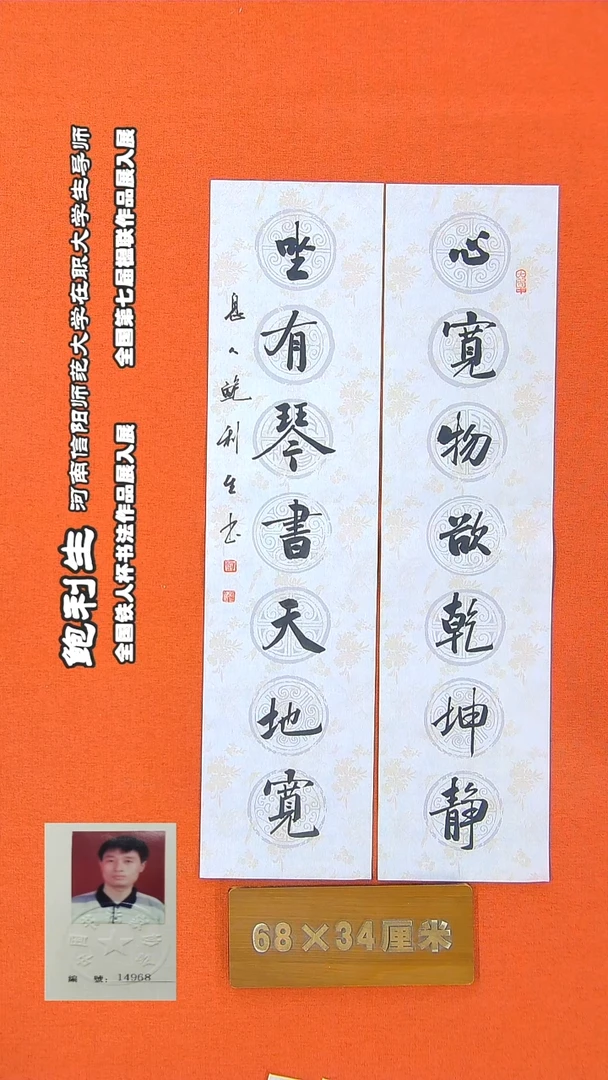 心寬物欲乾坤静
坐有琴書天地寬
息人鲍利生书
鲍利生 河南信阳师范大学在职大学生导师
全国铁人杯书法作品展入展 全国第七届楹联作品展入展
編 號: 14968
68×34厘米